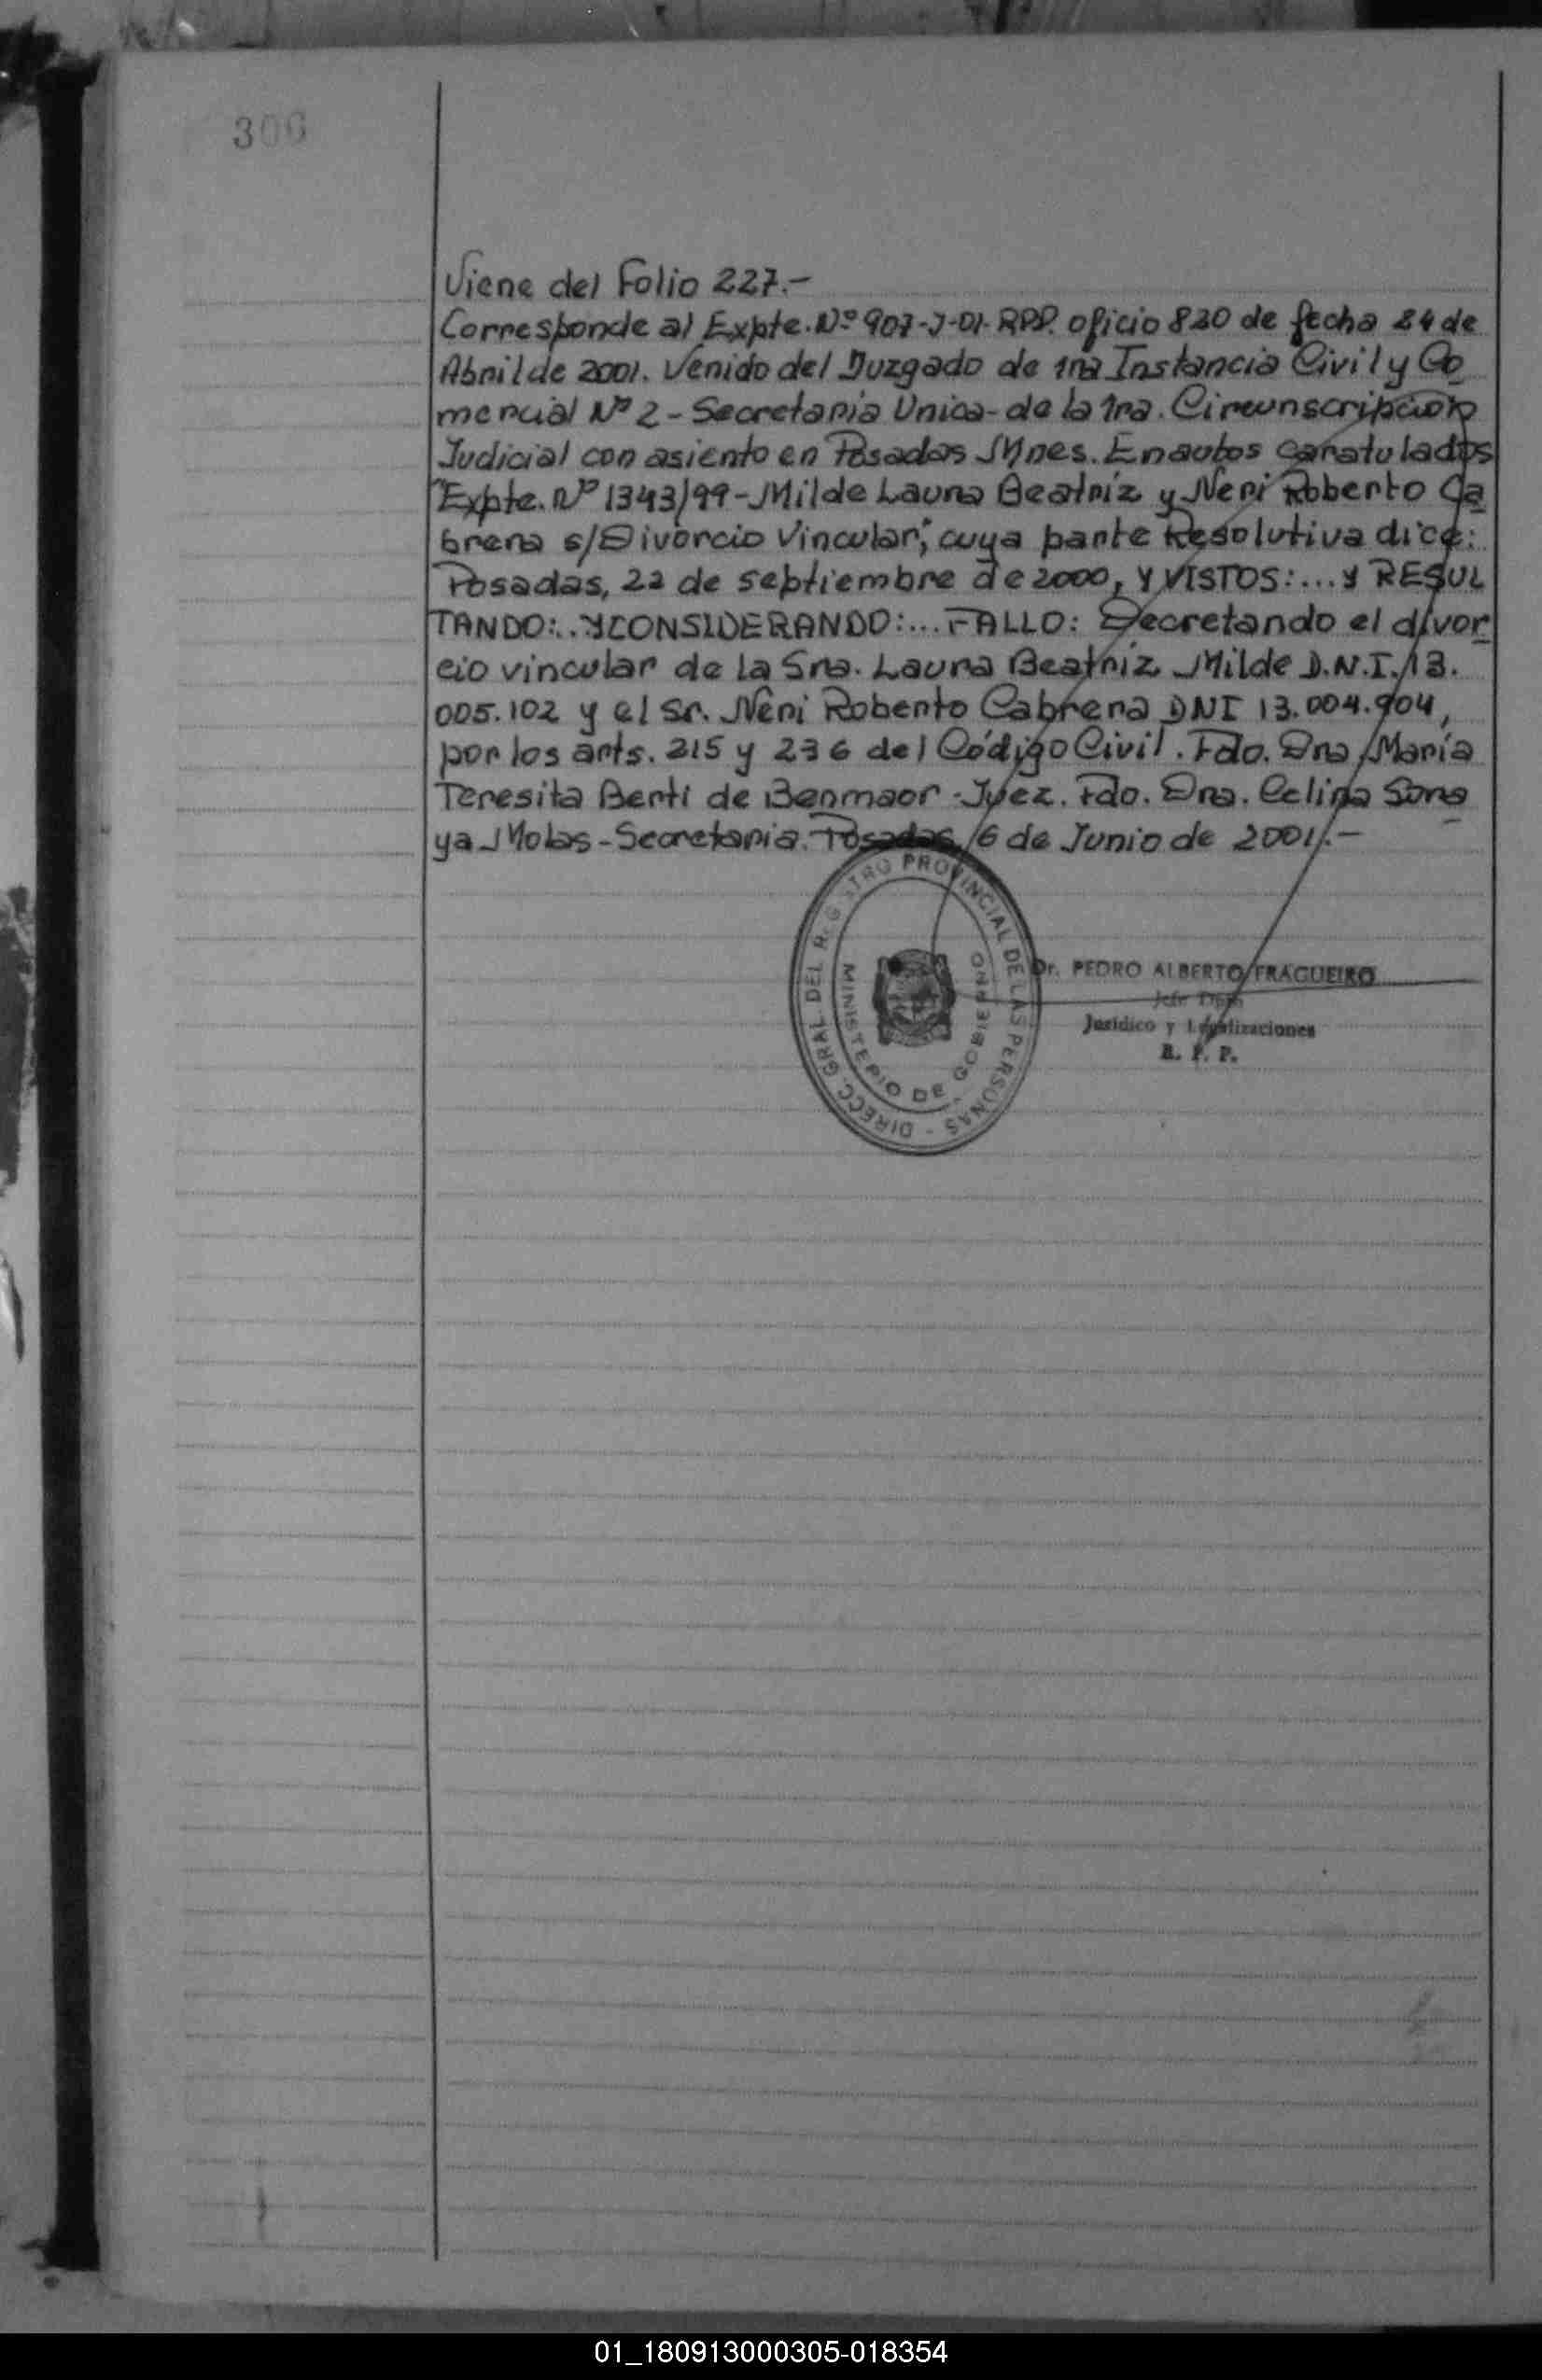 306
Viene del Folio 227.-
Corresponde al Expte. Nº 907-J-01-RPP. oficio 820 de fecha 24 de
Abril de 2001. Venido del Juzgado de 1ra Instancia Civil y Co
mercial Nº 2 - Secretaria Unica - de la 1ra. Circunscripción
Judicial con asiento en Posadas Mnes. En autos caratulados
"Expte. Nº 1343/99 - Milde Laura Beatríz y Neri Roberto Ca
brera s/Divorcio Vincular", cuya parte Resolutiva dice:
Posadas, 22 de septiembre de 2000, Y VISTOS:... Y RESUL
TANDO:.. Y CONSIDERANDO:... FALLO: Decretando el divor
cio vincular de la Sra. Laura Beatríz Milde D.N.I. 13.
005.102 y el Sr. Neri Roberto Cabrera DNI 13.004.904,
por los arts. 215 y 236 del Código Civil. Fdo. Dra María
Teresita Berti de Benmaor - Juez. Fdo. Dra. Celina Sora
ya Molas - Secretaria. Posadas, 6 de Junio de 2001.-
DIRECC. GRAL. DEL REGISTRO PROVINCIAL DE LAS PERSONAS -
MINISTERIO DE GOBIERNO
Dr. PEDRO ALBERTO FRAGUEIRO
Jefe Dpto
Jurídico y Legalizaciones
R. P. P.
01_180913000305-018354